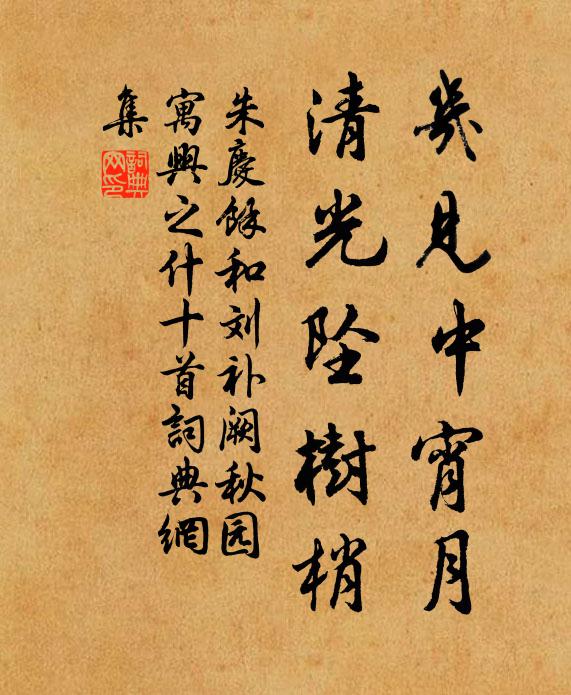 幾見中宵月
清光坠樹梢
朱慶餘和刘补阙秋园
寓興之什十首詞典網
集
詞典
网印